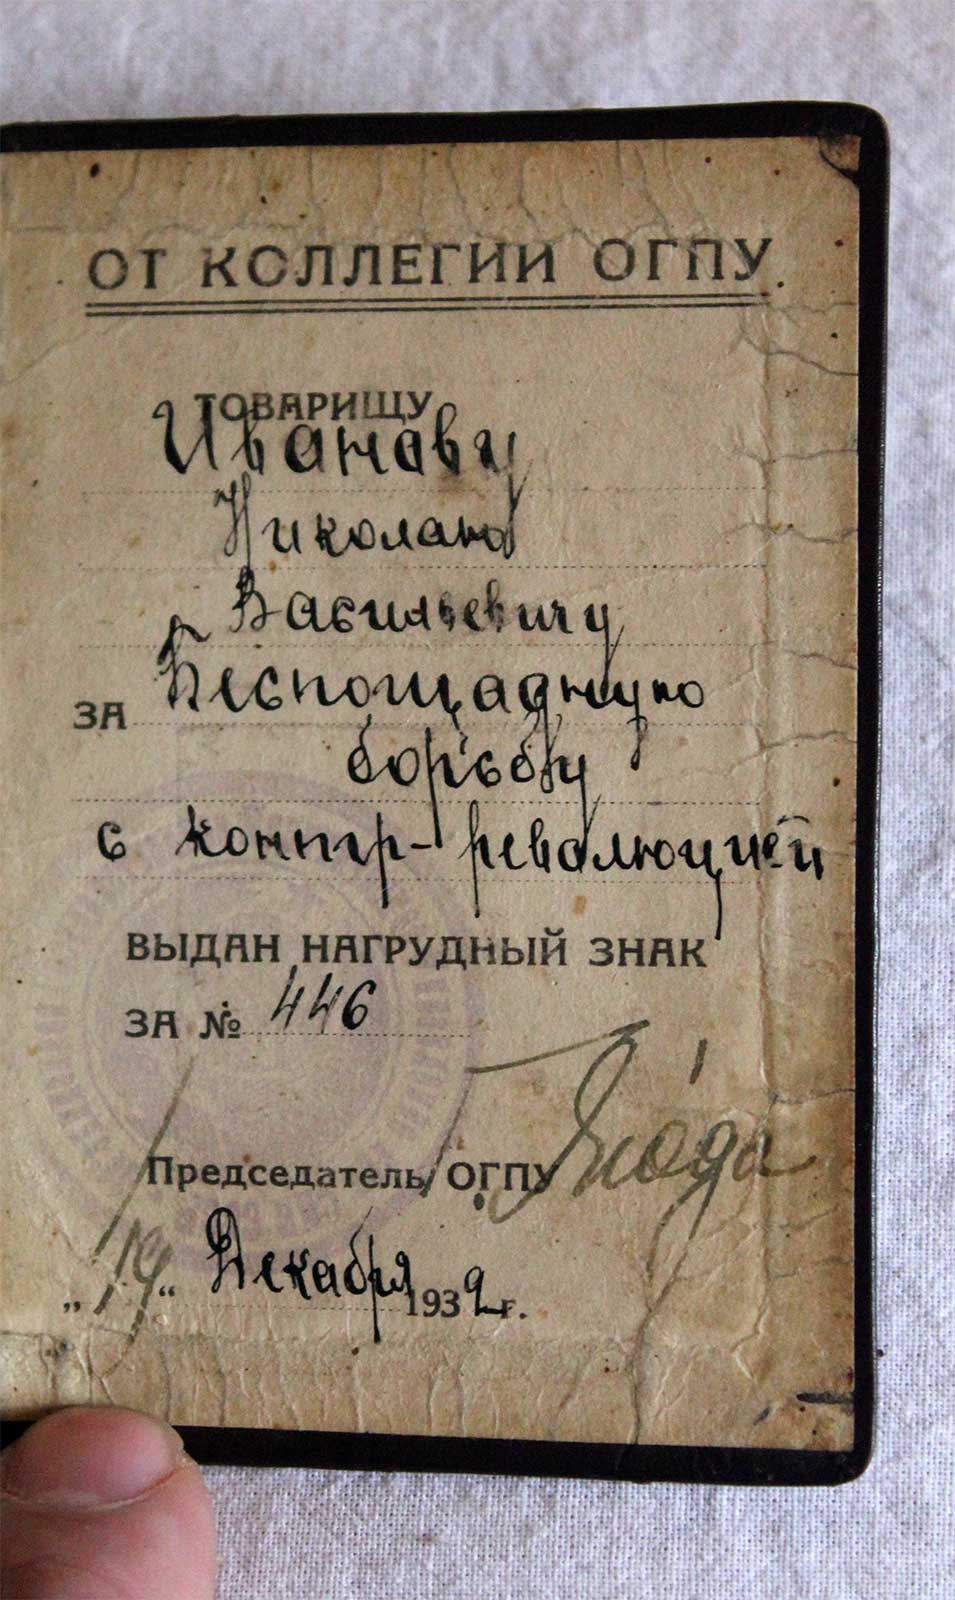 ОТ КОЛЛЕГИИ ОГПУ.
ТОВАРИЩУ
Иванову
Николаю
Васильевичу
ЗА Беспощадную
борьбу
с контр-революцией
ВЫДАН НАГРУДНЫЙ ЗНАК
ЗА № 446
Председатель ОГПУ Ягода
„19“ Декабря 1932 г.